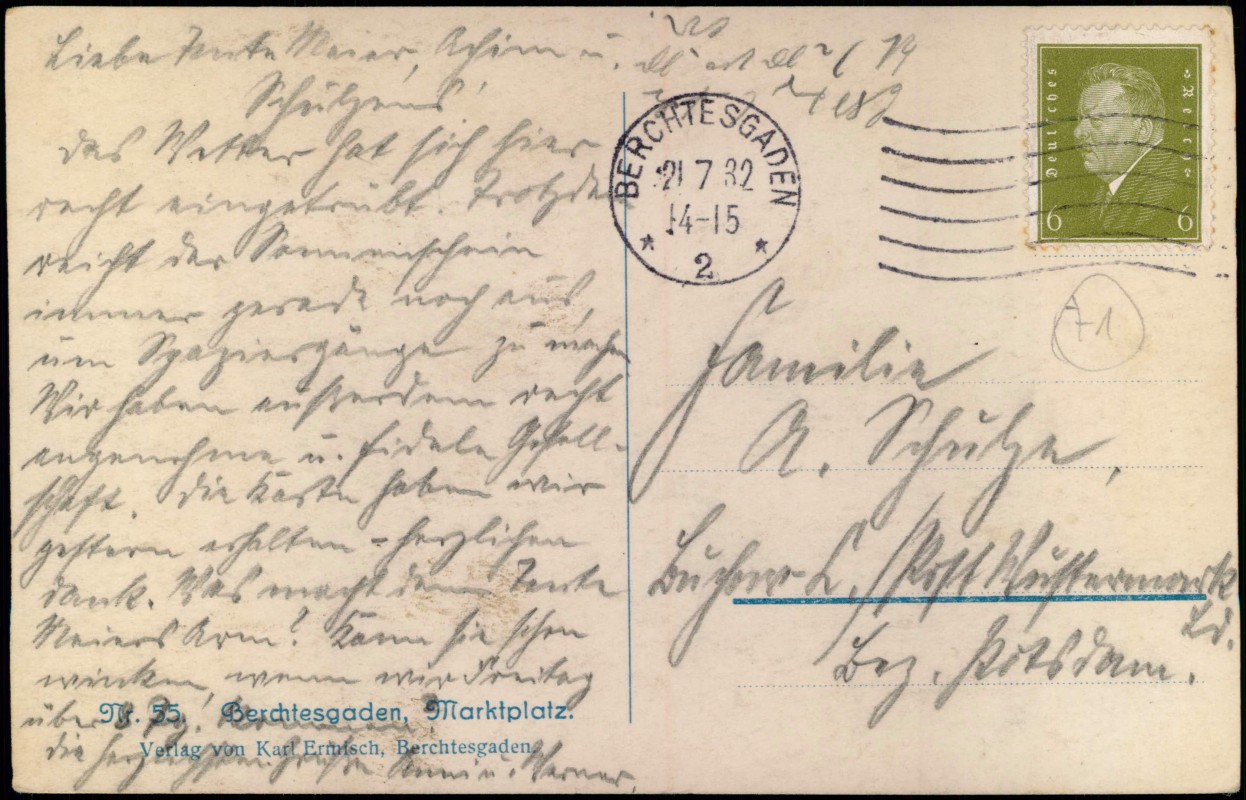 Liebe Tante Meier, Achim u.
Schulzens!
Das Wetter hat sich hier
recht eingetrübt. Trotzde
reicht der Sonnenschein
immer gerade noch aus,
um Spaziergänge zu machen
Wir haben außerdem recht
angenehme u. fidele Gesell-
schaft. Die Karte haben wir
gestern erhalten - herzlichen
Dank. Was macht denn Tante
Meiers Arm? Kann sie schon
winken, wenn wir Freitag
über 8 Tg. kommen?
Die herzlichsten Grüße Anni u. Werner.
Nr. 55. Berchtesgaden, Marktplatz.
Verlag von Karl Ermisch, Berchtesgaden.
BERCHTESGADEN
21.7.32
14-15
2
Deutsches Reich
6 6
71
Familie
A. Schulze,
Post Wustermark
Bez. Potsdam.